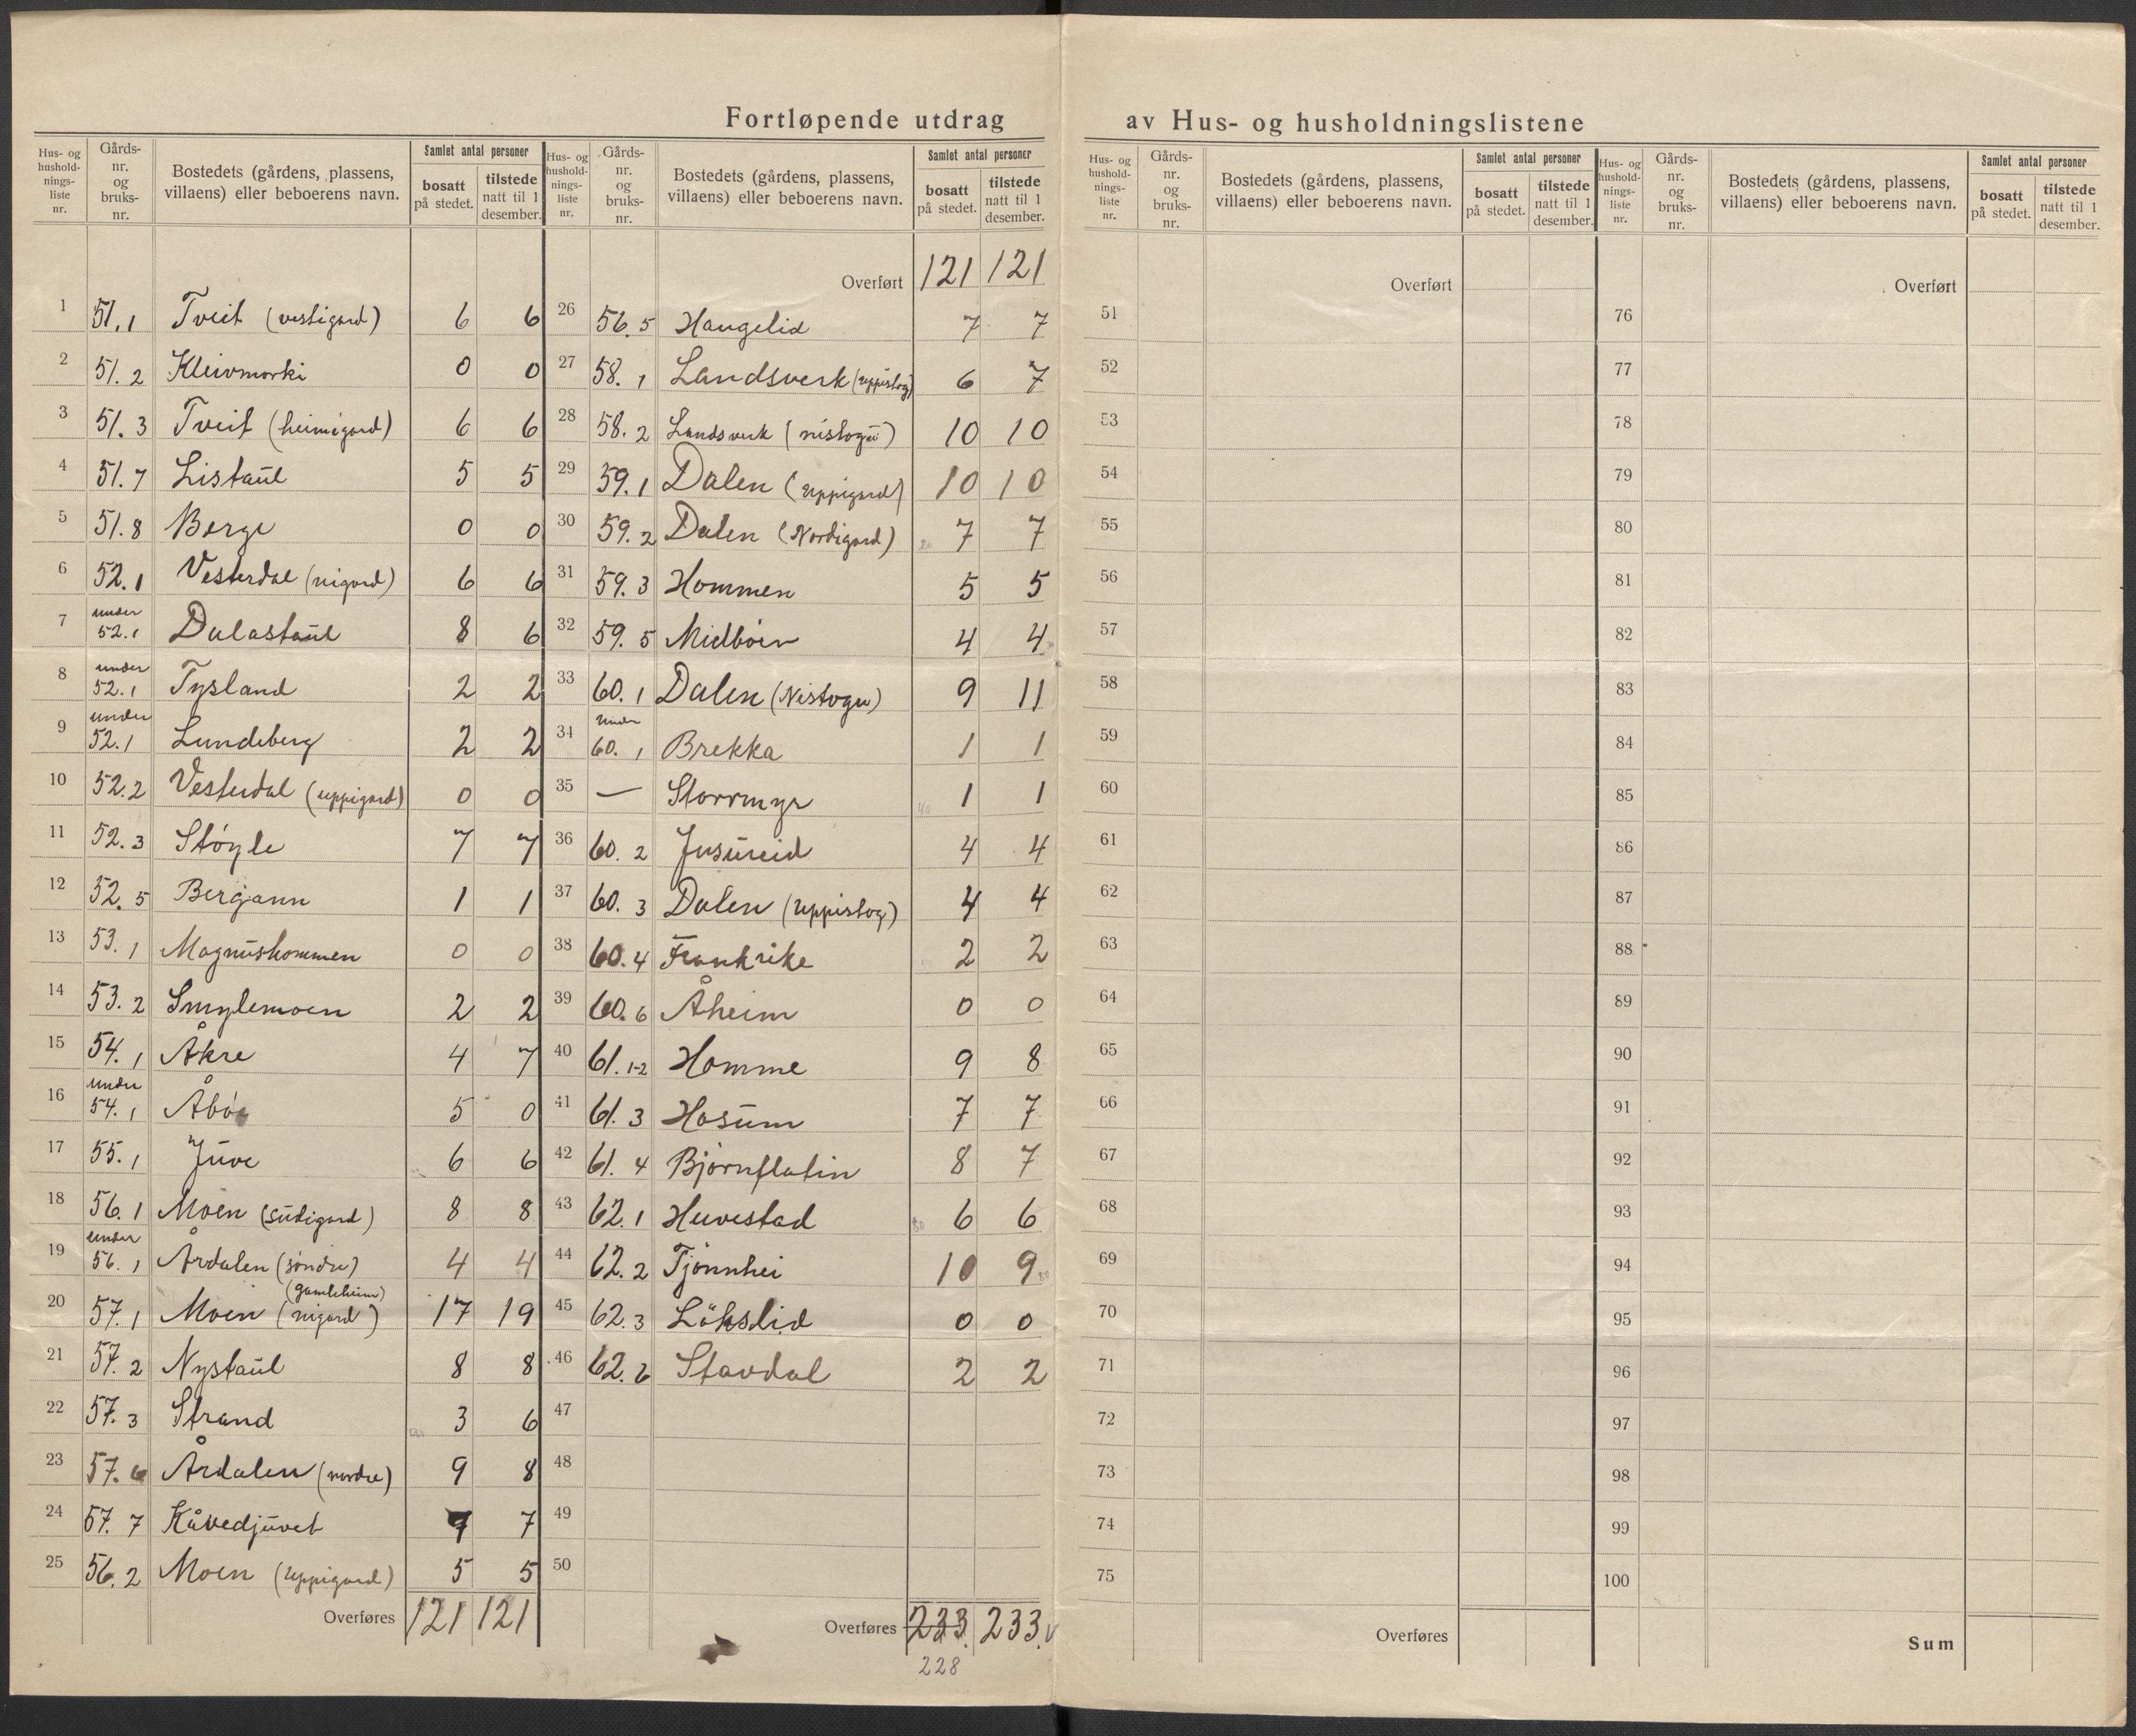 Fortløpende utdrag av Hus- og husholdningslistene
Hus- og hushold- nings- liste nr. | Gårds- nr. og bruks- nr. | Bostedets (gårdens, plassens, villaens) eller beboerens navn. | Samlet antal personer | bosatt på stedet. | tilstede natt til 1 desember.
1 51.1 Tveit (vestigard) 6 6
2 51.2 Kleivmorki 0 0
3 51.3 Tveit (heimigard) 6 6
4 51.7 Listaul 5 5
5 51.8 Berge 0 0
6 52.1 Vesterdal (nigard) 6 6
7 under 52.1 Dalastaul 8 6
8 under 52.1 Tysland 2 2
9 under 52.1 Lundeberg 2 2
10 52.2 Vesterdal (uppigard) 0 0
11 52.3 Støyle 7 7
12 52.5 Bergann 1 1
13 53.1 Magnushommen 0 0
14 53.2 Smylemoen 2 2
15 54.1 Åkre 4 7
16 under 54.1 Åbø 5 0
17 55.1 Juve 6 6
18 56.1 Moen (sudigard) 8 8
19 under 56.1 Årdalen (söndre) 4 4
20 57.1 Moen (nigard) (gamleheim) 17 19
21 57.2 Nystaul 8 8
22 57.3 Strand 3 6
23 57.6 Årdalen (nordre) 9 8
24 57.7 Kåvedjuvet 7 7
25 56.2 Moen (uppigard) 5 5
Overføres 121 121
Hus- og hushold- nings- liste nr. | Gårds- nr. og bruks- nr. | Bostedets (gårdens, plassens, villaens) eller beboerens navn. | Samlet antal personer | bosatt på stedet. | tilstede natt til 1 desember.
Overført 121 121
26 56.5 Haugelid 7 7
27 58.1 Landsverk (uppistog) 6 7
28 58.2 Landsverk (nistogu) 10 10
29 59.1 Dalen (uppigard) 10 10
30 59.2 Dalen (Nordigard) 7 7
31 59.3 Hommen 5 5
32 59.5 Midbøen 4 4
33 60.1 Dalen (Nistogu) 9 11
34 under 60.1 Brekka 1 1
35 — Storrmyr 1 1
36 60.2 Jusureid 4 4
37 60.3 Dalen (uppistog) 4 4
38 60.4 Frankrike 2 2
39 60.6 Åheim 0 0
40 61.1-2 Homme 9 8
41 61.3 Hasum 7 7
42 61.4 Bjørnflatin 8 7
43 62.1 Huvestad 6 6
44 62.2 Tjønnhei 10 9
45 62.3 Lökslid 0 0
46 62.6 Stavdal 2 2
47
48
49
50
Overføres 233. 233.
228
Hus- og hushold- nings- liste nr. | Gårds- nr. og bruks- nr. | Bostedets (gårdens, plassens, villaens) eller beboerens navn. | Samlet antal personer | bosatt på stedet. | tilstede natt til 1 desember.
Overført
51
52
53
54
55
56
57
58
59
60
61
62
63
64
65
66
67
68
69
70
71
72
73
74
75
Overføres
Hus- og hushold- nings- liste nr. | Gårds- nr. og bruks- nr. | Bostedets (gårdens, plassens, villaens) eller beboerens navn. | Samlet antal personer | bosatt på stedet. | tilstede natt til 1 desember.
Overført
76
77
78
79
80
81
82
83
84
85
86
87
88
89
90
91
92
93
94
95
96
97
98
99
100
Sum